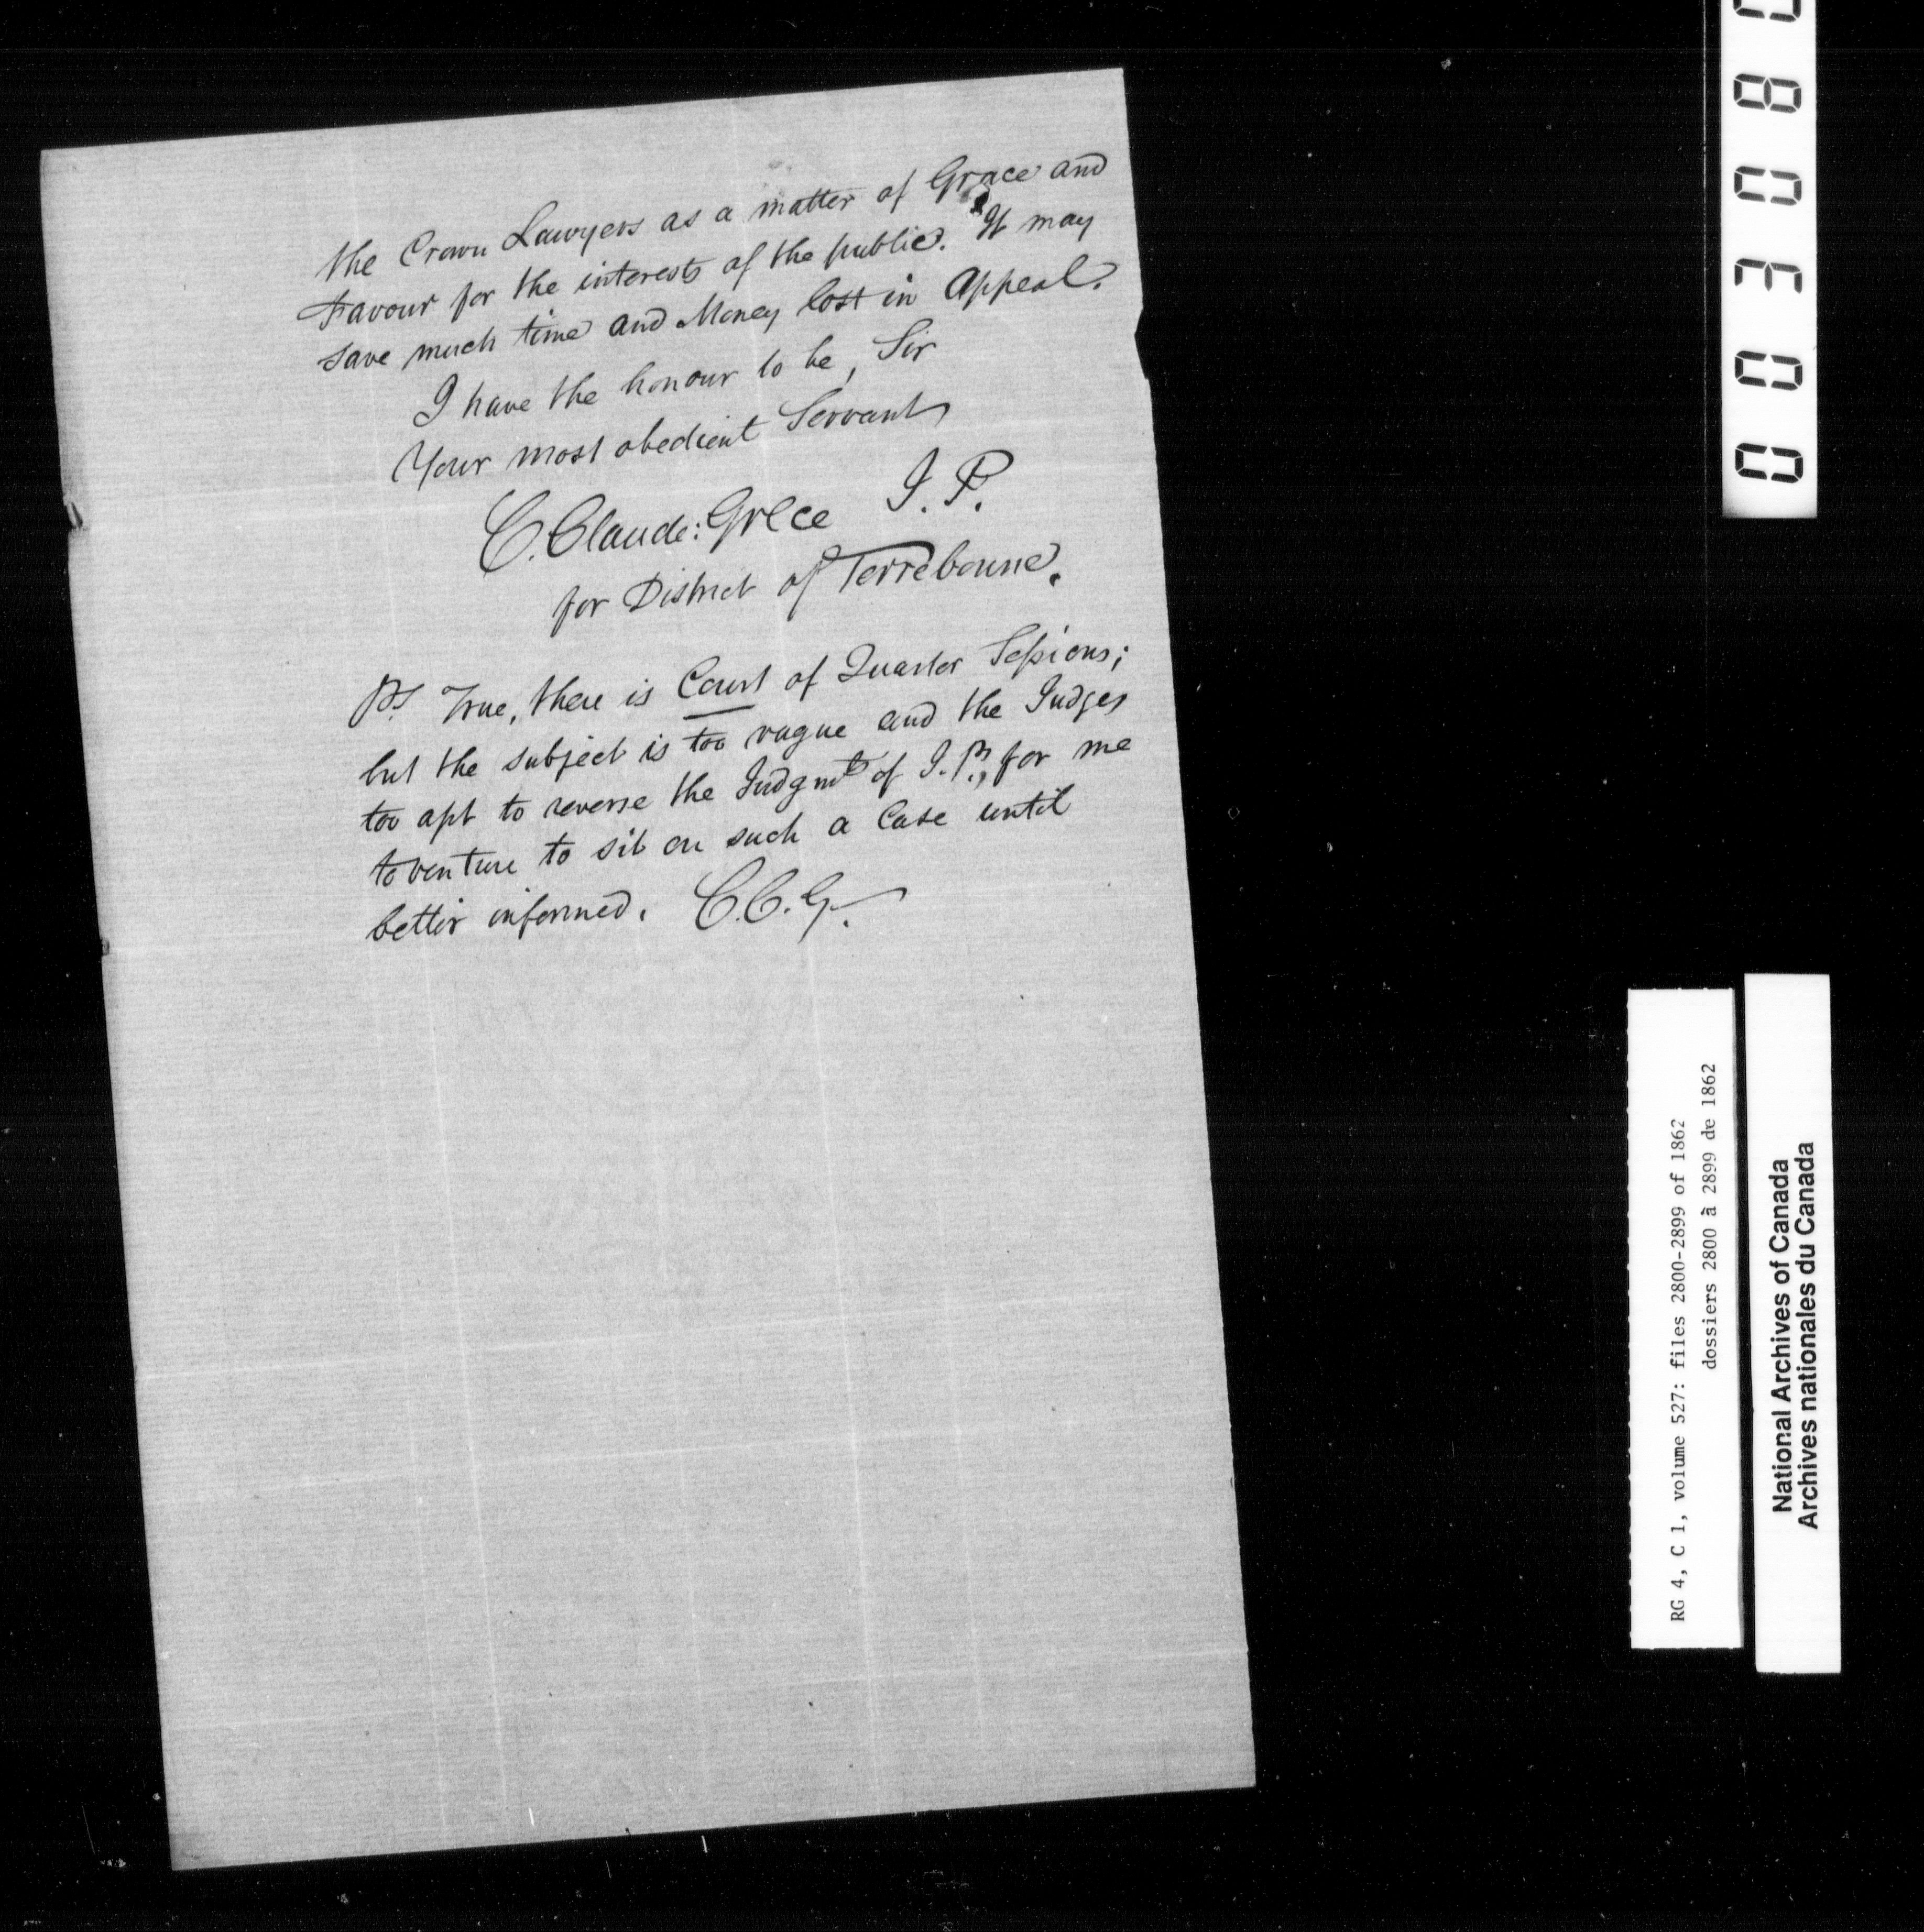 the Crown Lawyers as a matter of Grace and
Favour for the interests of the public. It may
save much time and Money lost in Appeal.
I have the honour to be, Sir
Your most obedient Servant
C. Claude: Grece J. P.
for District of Terrebonne.
PS. True, there is Court of Quarter Sessions;
but the subject is too vague and the Judges
too apt to reverse the Judgmts of J. Ps, for me
to venture to sit on such a Case until
better informed. C. C. G.
0 0 3 0 8
RG 4, C 1, volume 527: files 2800-2899 of 1862
dossiers 2800 à 2899 de 1862
National Archives of Canada
Archives nationales du Canada